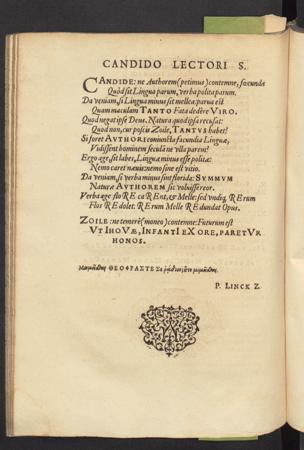 CANDIDO LECTORI S.
CANDIDE: ne Authorem (petimus) contemne, facunda
Quòd sit Lingua parum, verba polita parum.
Da veniam, si Lingua minus sit mellea: parua est
Quam maculam TANTO Fata dedêre VIRO.
Quod negat ipse Deus. Natura quod ipsa recusat:
Quod non, cur poscis Zoile, TANTVS habet?
Si foret AVTHORI coniuncta facundia Linguæ,
Vidissent hominem secula ne vlla parem?
Ergo age, sit labes, Lingua minus esse politæ:
Nemo caret næuis: nemo sine est vitio.
Da veniam, si verba minus sint florida: SVMMVM
Naturæ AVTHOREM sic voluisse reor.
Verba age sto RE caRENt, & Melle: sed vndiq, RErum
Flos REdolet. RErum Melle REdundat Opus.
ZOILE: ne temerè (moneo) contemne: Futurum est
VT IHOVÆ, INFANTI EX ORE, PARETVR
HONOS.
ΘΕΟΦΡΑΣΤΕ
P. LINCK Z.